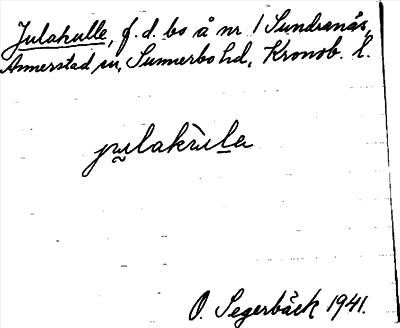 Julakulle, f. d. bs å nr 1 Sundranäs,
Annerstad sn, Sunnerbo hd, Kronob. l.
julakùla
O. Segerbäck 1941.